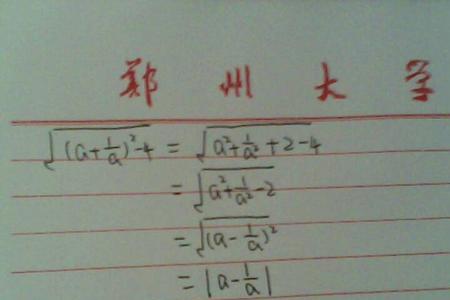 郑州大学
√((a+1/a)²-4) = √(a²+1/a²+2-4)
= √(a²+1/a²-2)
= √((a-1/a)²)
= |a-1/a|